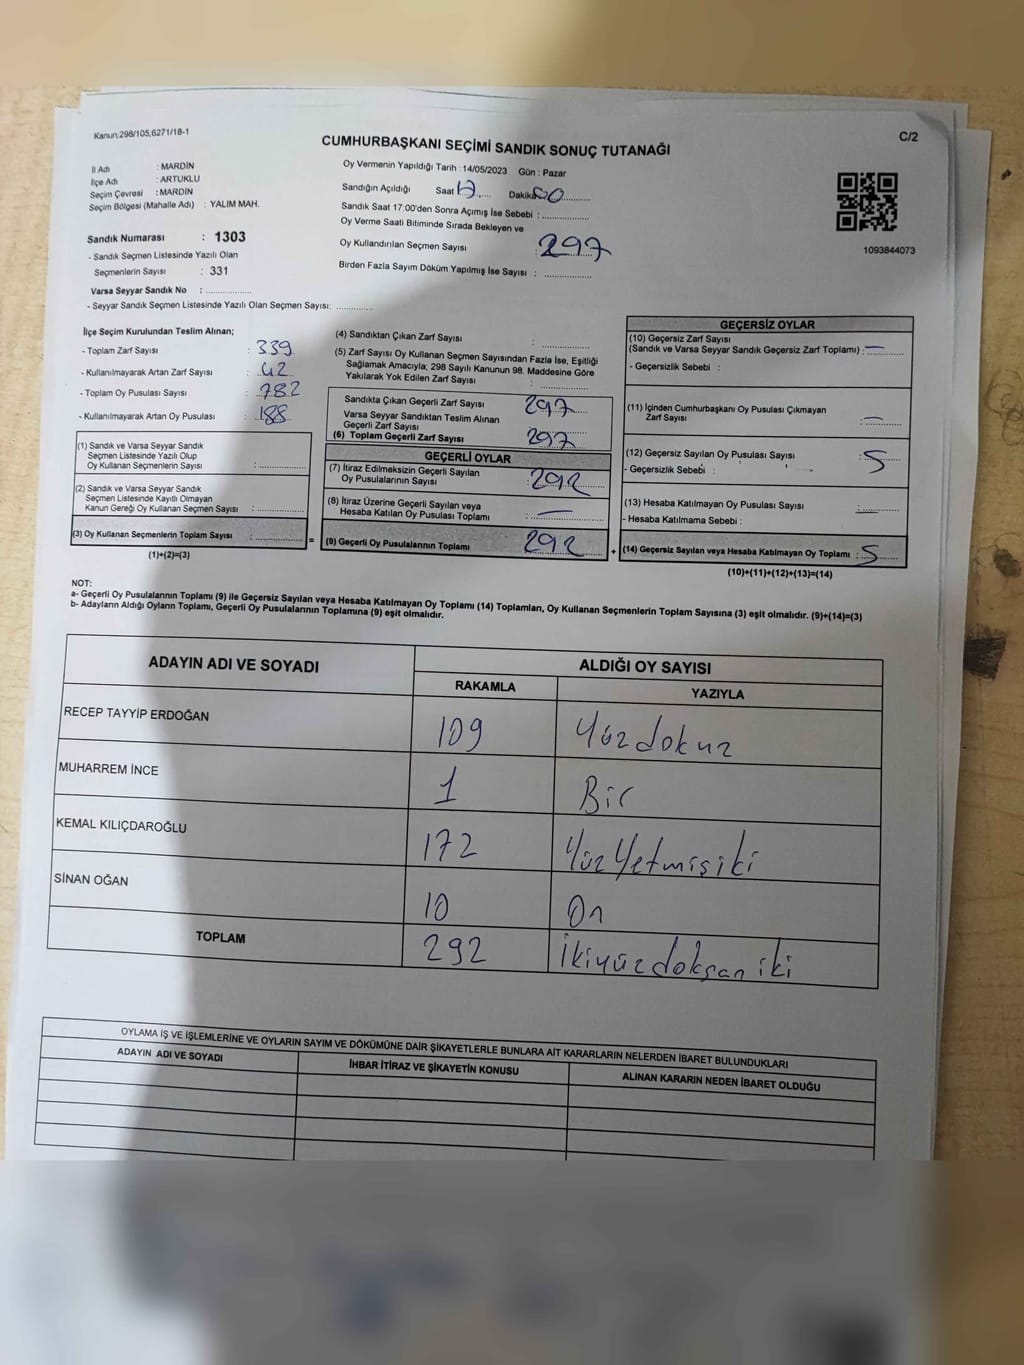 Kanun;298/105,6271/18-1
C/2
CUMHURBAŞKANI SEÇİMİ SANDIK SONUÇ TUTANAĞI
İl Adı : MARDİN
İlçe Adı : ARTUKLU
Seçim Çevresi : MARDİN
Seçim Bölgesi (Mahalle Adı) : YALIM MAH.
Sandık Numarası : 1303
- Sandık Seçmen Listesinde Yazılı Olan
Seçmenlerin Sayısı : 331
Varsa Seyyar Sandık No : ...............
- Seyyar Sandık Seçmen Listesinde Yazılı Olan Seçmen Sayısı: ............
Oy Vermenin Yapıldığı Tarih : 14/05/2023 Gün : Pazar
Sandığın Açıldığı Saat 17 Dakika
Sandık Saat 17:00'den Sonra Açımış İse Sebebi : ...............
Oy Verme Saati Bitiminde Sırada Bekleyen ve
Oy Kullandırılan Seçmen Sayısı : 297
Birden Fazla Sayım Döküm Yapılmış İse Sayısı : ...............
1093844073
İlçe Seçim Kurulundan Teslim Alınan;
- Toplam Zarf Sayısı : 339
- Kullanılmayarak Artan Zarf Sayısı : 42
- Toplam Oy Pusulası Sayısı : 782
- Kullanılmayarak Artan Oy Pusulası : 188
(1) Sandık ve Varsa Seyyar Sandık
Seçmen Listesinde Yazılı Olup
Oy Kullanan Seçmenlerin Sayısı : ...............
(2) Sandık ve Varsa Seyyar Sandık
Seçmen Listesinde Kayıtlı Olmayan
Kanun Gereği Oy Kullanan Seçmen Sayısı : ...............
(3) Oy Kullanan Seçmenlerin Toplam Sayısı : ............... =
(1)+(2)=(3)
(4) Sandıktan Çıkan Zarf Sayısı : ...............
(5) Zarf Sayısı Oy Kullanan Seçmen Sayısından Fazla İse, Eşitliği
Sağlamak Amacıyla; 298 Sayılı Kanunun 98. Maddesine Göre
Yakılarak Yok Edilen Zarf Sayısı : ...............
Sandıkta Çıkan Geçerli Zarf Sayısı 297
Varsa Seyyar Sandıktan Teslim Alınan
Geçerli Zarf Sayısı
(6) Toplam Geçerli Zarf Sayısı 297
GEÇERLİ OYLAR
(7) İtiraz Edilmeksizin Geçerli Sayılan
Oy Pusulalarının Sayısı : 292
(8) İtiraz Üzerine Geçerli Sayılan veya
Hesaba Katılan Oy Pusulası Toplamı : —
(9) Geçerli Oy Pusulalarının Toplamı 292 +
GEÇERSİZ OYLAR
(10) Geçersiz Zarf Sayısı
(Sandık ve Varsa Seyyar Sandık Geçersiz Zarf Toplamı) : —
- Geçersizlik Sebebi :
(11) İçinden Cumhurbaşkanı Oy Pusulası Çıkmayan
Zarf Sayısı : —
(12) Geçersiz Sayılan Oy Pusulası Sayısı : 5
- Geçersizlik Sebebi :
(13) Hesaba Katılmayan Oy Pusulası Sayısı : —
- Hesaba Katılmama Sebebi :
(14) Geçersiz Sayılan veya Hesaba Katılmayan Oy Toplamı : 5
(10)+(11)+(12)+(13)=(14)
NOT:
a- Geçerli Oy Pusulalarının Toplamı (9) ile Geçersiz Sayılan veya Hesaba Katılmayan Oy Toplamı (14) Toplamları, Oy Kullanan Seçmenlerin Toplam Sayısına (3) eşit olmalıdır. (9)+(14)=(3)
b- Adayların Aldığı Oyların Toplamı, Geçerli Oy Pusulalarının Toplamına (9) eşit olmalıdır.
ADAYIN ADI VE SOYADI ALDIĞI OY SAYISI
RAKAMLA YAZIYLA
RECEP TAYYİP ERDOĞAN 109 Yüzdokuz
MUHARREM İNCE 1 Bir
KEMAL KILIÇDAROĞLU 172 YüzYetmişiki
SİNAN OĞAN 10 On
TOPLAM 292 İkiyüzdoksaniki
OYLAMA İŞ VE İŞLEMLERİNE VE OYLARIN SAYIM VE DÖKÜMÜNE DAİR ŞİKAYETLERLE BUNLARA AİT KARARLARIN NELERDEN İBARET BULUNDUKLARI
ADAYIN ADI VE SOYADI İHBAR İTİRAZ VE ŞİKAYETİN KONUSU ALINAN KARARIN NEDEN İBARET OLDUĞU